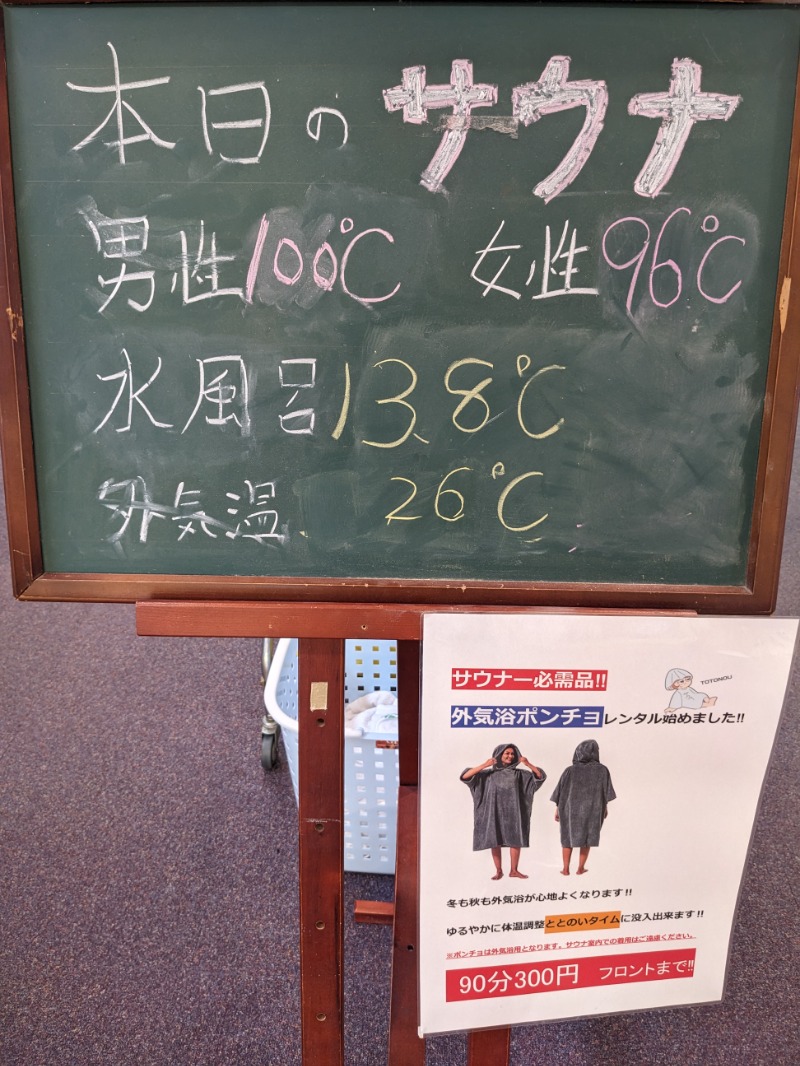 本日のサウナ
男性100℃ 女性96℃
水風呂13.8℃
外気温 26℃
サウナー必需品!!
TOTONOU
外気浴ポンチョレンタル始めました!!
冬も秋も外気浴が心地よくなります!!
ゆるやかに体温調整ととのいタイムに没入出来ます!!
※ポンチョは外気浴用となります。サウナ室内での着用はご遠慮ください。
90分300円 フロントまで!!